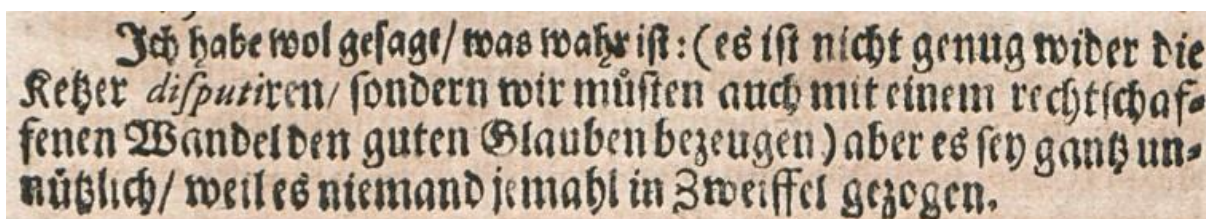 Ich habe wol gesagt/ was wahr ist: (es ist nicht genug wider die
Ketzer disputiren/ sondern wir müsten auch mit einem rechtschaf-
fenen Wandel den guten Glauben bezeugen) aber es sey gantz un-
nützlich/ weil es niemand jemahl in Zweiffel gezogen.